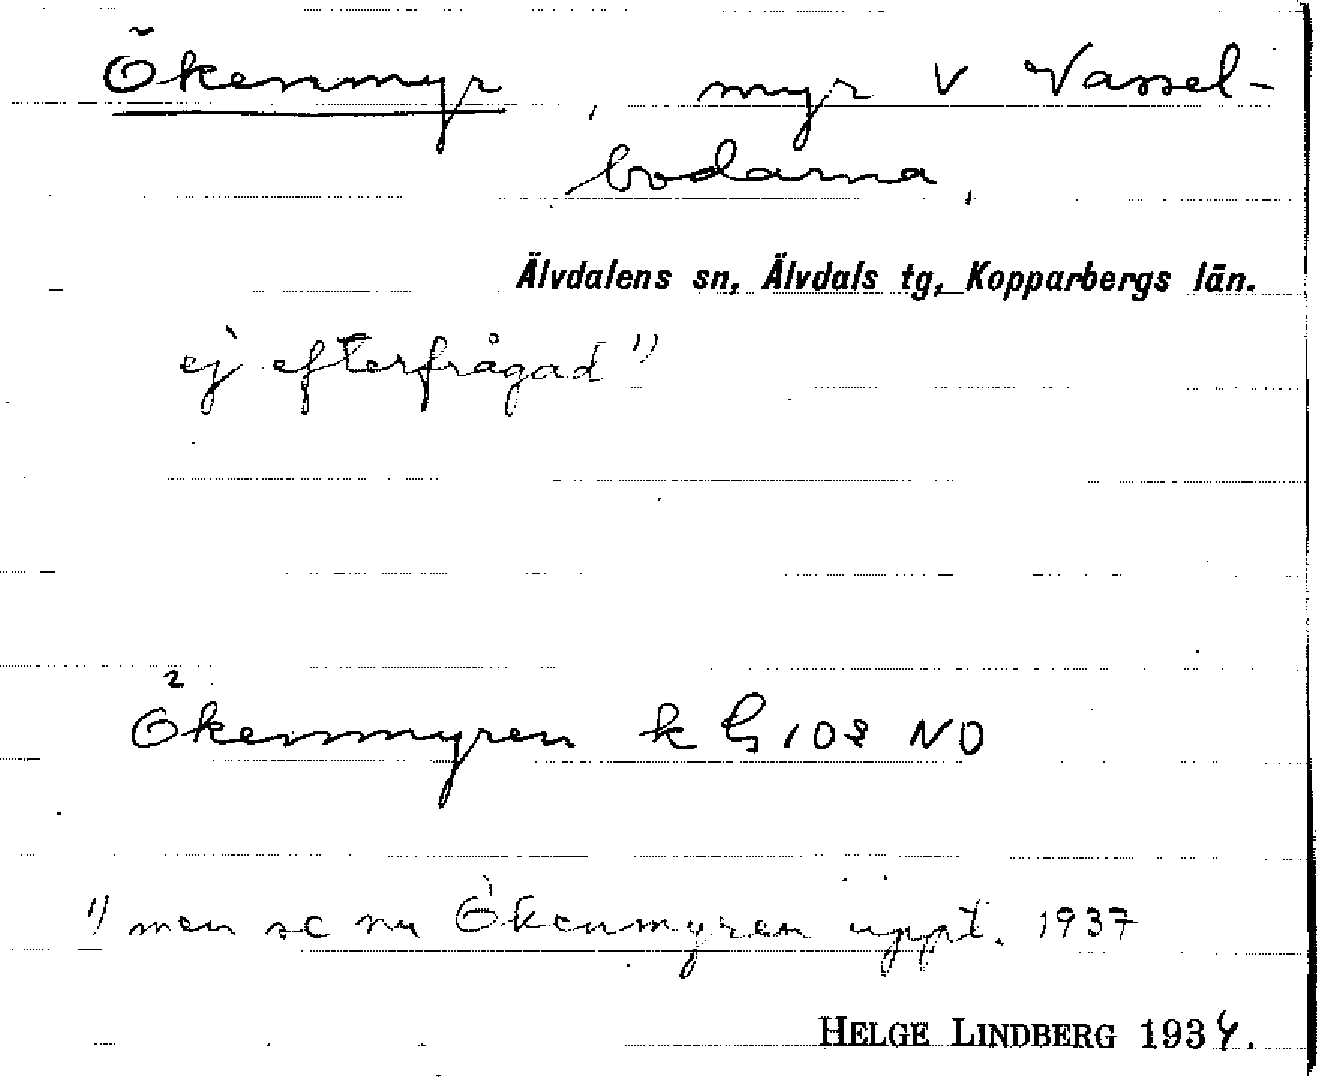 Ökenmyr, myr v Vassel-
bodarna,
Älvdalens sn, Älvdals tg, Kopparbergs län.
ej efterfrågad 1)
Ökenmyren k G 102 NO
1) men se nu Ökenmyren uppt. 1937
HELGE LINDBERG 1934.